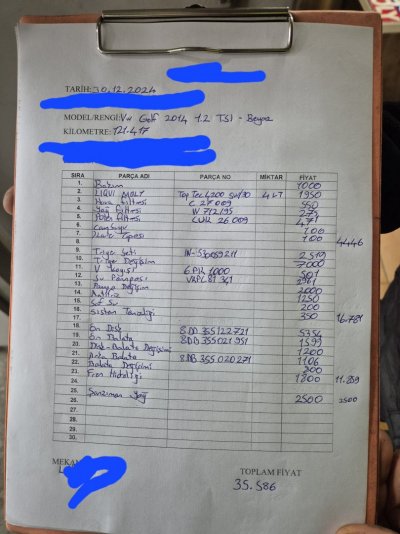 TARİH: 30.12.2024
MODEL/RENGİ: Vw Golf 2014 1.2 TSI - Beyaz
KİLOMETRE: 121.417
SIRA PARÇA ADI PARÇA NO MİKTAR FİYAT
1. Bakım 1000
2. LIQUI MOLY Top Tec 4200 5w/30 4 LT 1950
3. Hava filtresi C 27 009 550
4. Yağ filtresi W 712/95 275
5. Polen filtresi CUK 26 009 471
6. 100
7. 100
8. 4446
9. Triger Seti 2519
10. Triger Değişim 7000
11. V Kayışı 6 PK 1000 501
12. Su Pompası
13. Değişim 2000
14. Antifriz 1250
15. Saf Su 200
16. Sistem Temizliği 350
17. 16.781
18. Ön Disk 8DD 355 122 721 5354
19. Ön Balata 8DB 355 021 951 1599
20. Disk-Balata Değişimi 1200
21. Arka Balata 8DB 355 020 271 1106
22. Balata Değişimi 800
23. Fren Hidroliği 1800
24. 11.859
25. Şanzıman Yağ 2500 2500
26.
27.
28.
29.
30.
MEKAN
TOPLAM FİYAT
35.586